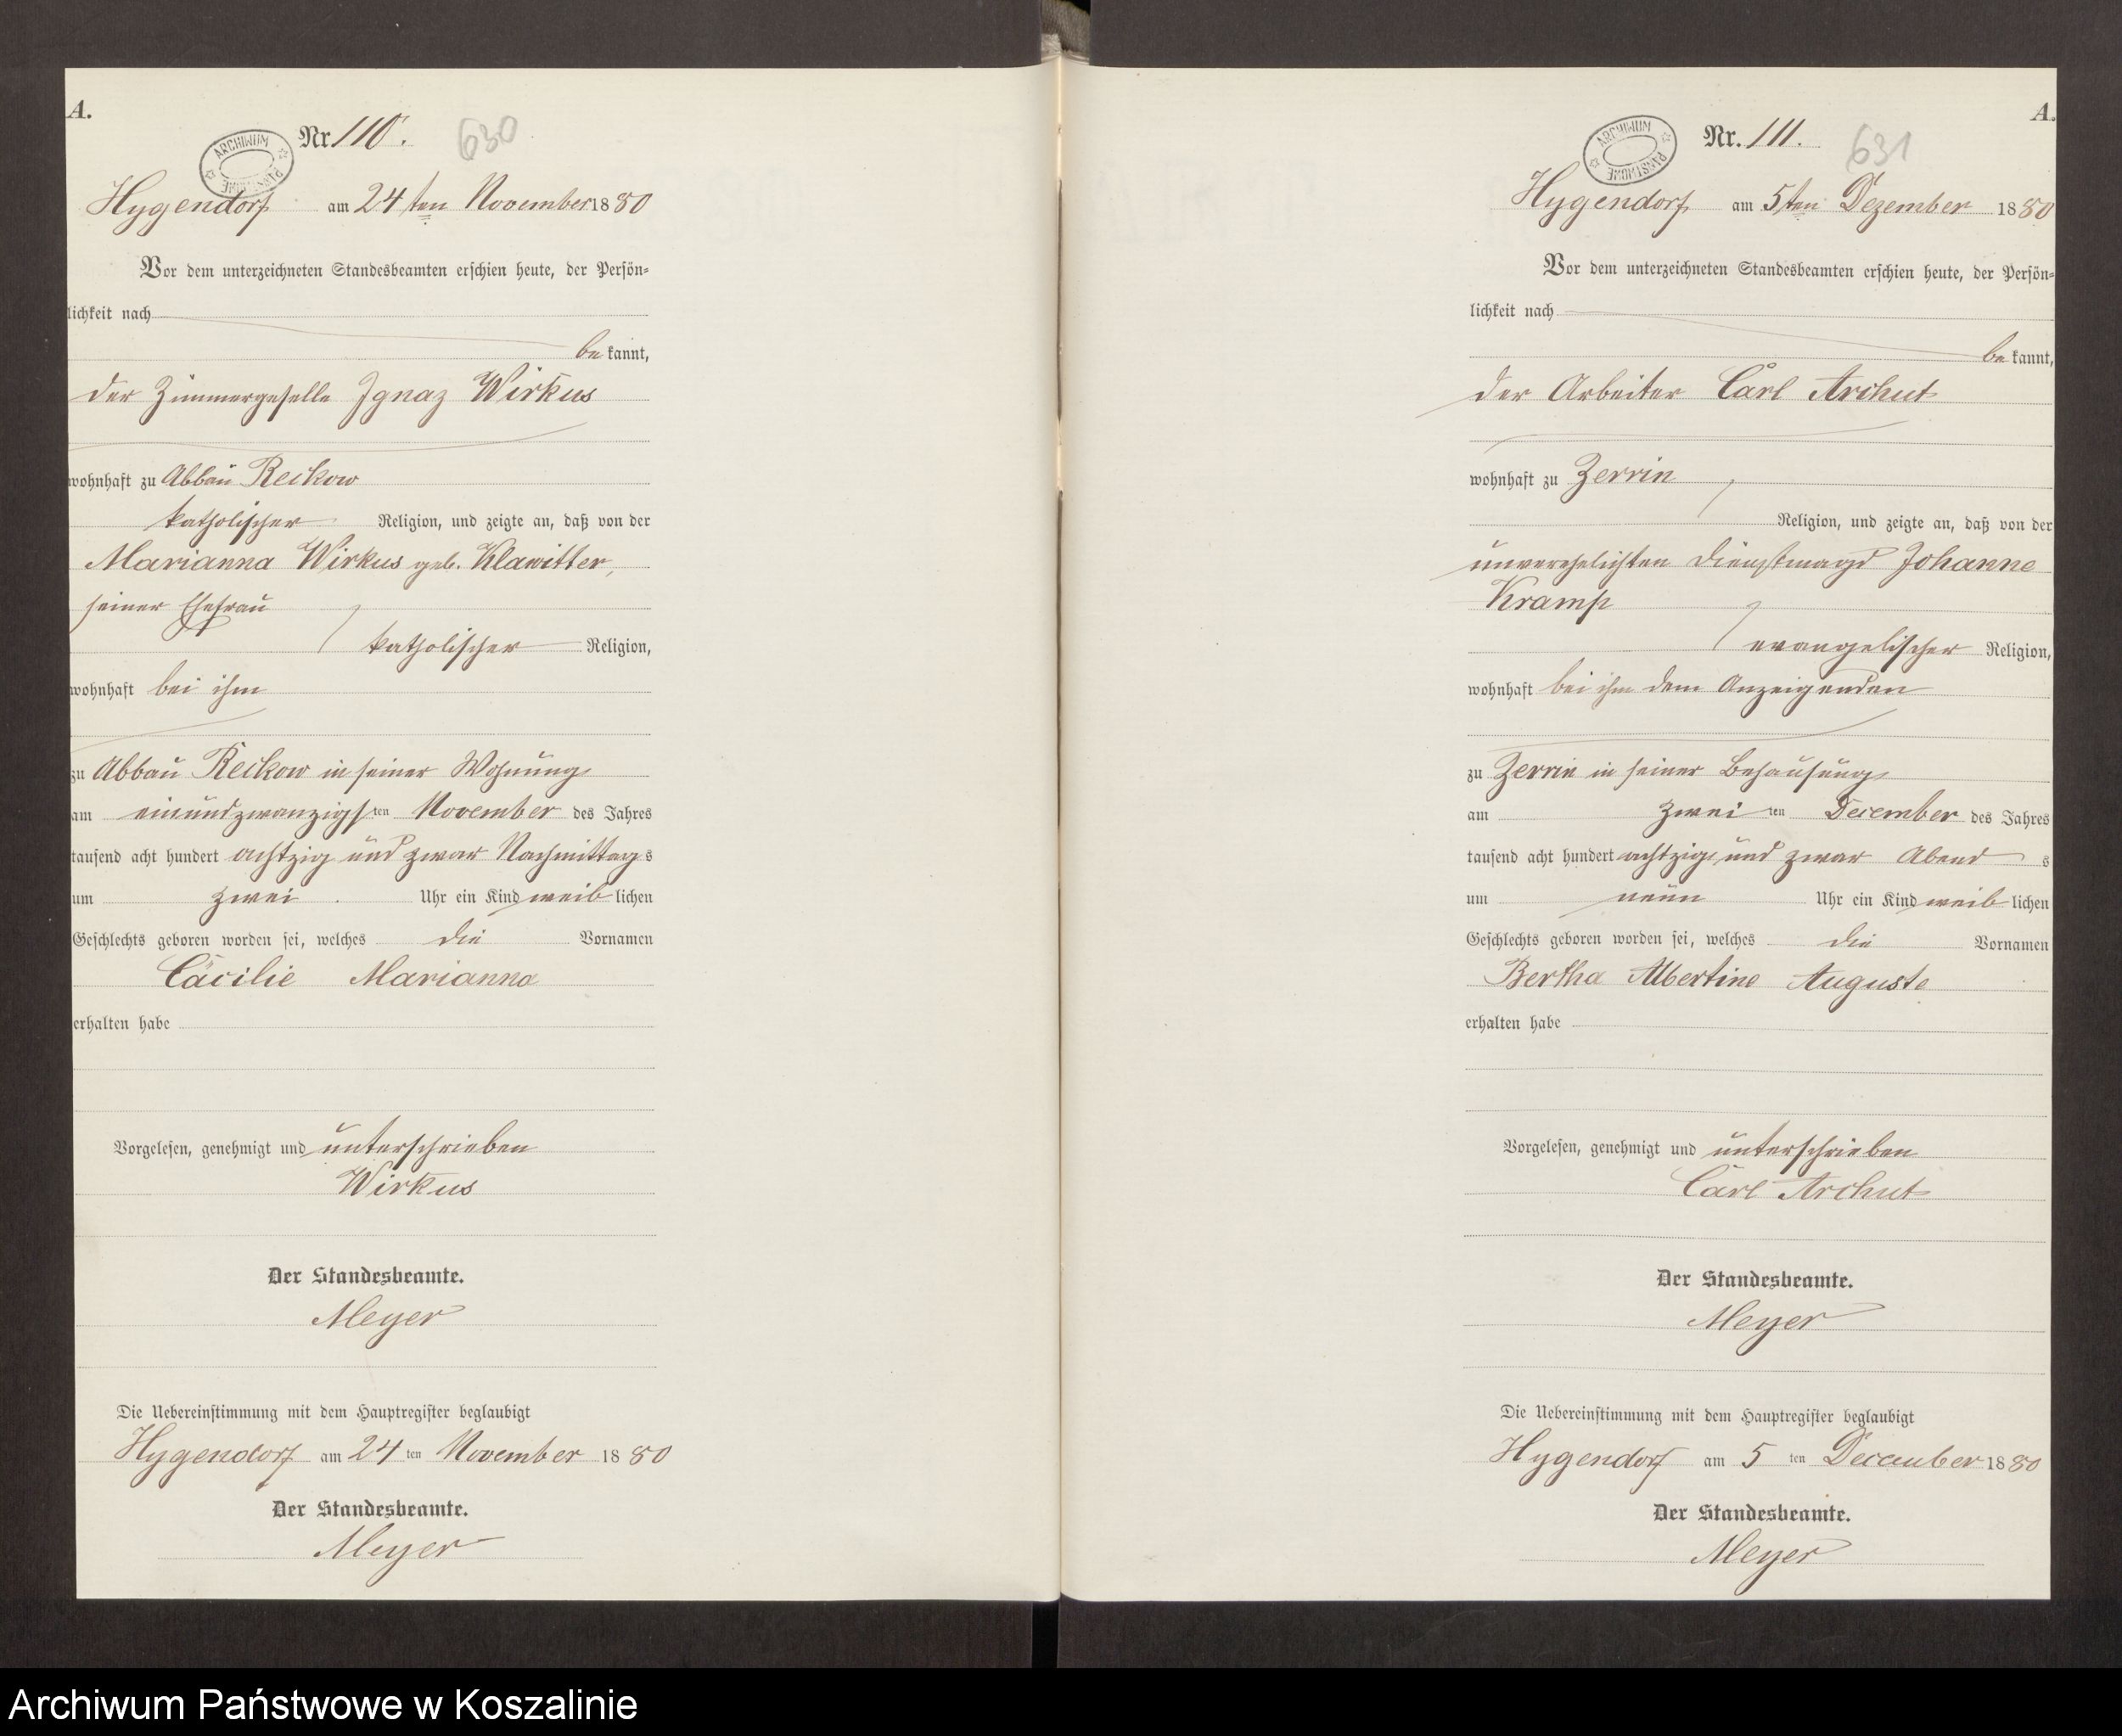 A.
Nr. 110.
630
ARCHIWUM PAŃSTWOWE
Hygendorf am 24ten November 1880
Vor dem unterzeichneten Standesbeamten erschien heute, der Persön-
lichkeit nach
be kannt,
der Zimmergeselle Ignaz Wirkus
wohnhaft zu Abbau Reckow
katholischer Religion, und zeigte an, daß von der
Marianna Wirkus geb. Klawitter,
seiner Ehefrau
katholischer Religion,
wohnhaft bei ihm
zu Abbau Reckow in seiner Wohnung
am einundzwanzigsten November des Jahres
tausend acht hundert achtzig und zwar Nachmittags
um zwei Uhr ein Kind weiblichen
Geschlechts geboren worden sei, welches die Vornamen
Cäcilie Marianna
erhalten habe
Vorgelesen, genehmigt und unterschrieben
Wirkus
Der Standesbeamte.
Meyer
Die Uebereinstimmung mit dem Hauptregister beglaubigt
Hygendorf am 24 ten November 1880
Der Standesbeamte.
Meyer
A.
Nr. 111.
631
ARCHIWUM PAŃSTWOWE
Hygendorf am 5ten Dezember 1880
Vor dem unterzeichneten Standesbeamten erschien heute, der Persön-
lichkeit nach
be kannt,
der Arbeiter Carl Archut
wohnhaft zu Zerrin
Religion, und zeigte an, daß von der
unverehelichten Dienstmagd Johanne
Kramp
evangelischer Religion,
wohnhaft bei ihm dem Anzeigenden
zu Zerrin in seiner Behausung
am zwei ten December des Jahres
tausend acht hundert achtzig und zwar Abends
um neun Uhr ein Kind weiblichen
Geschlechts geboren worden sei, welches die Vornamen
Bertha Albertine Auguste
erhalten habe
Vorgelesen, genehmigt und unterschrieben
Carl Archut
Der Standesbeamte.
Meyer
Die Uebereinstimmung mit dem Hauptregister beglaubigt
Hygendorf am 5 ten December 1880
Der Standesbeamte.
Meyer
Archiwum Państwowe w Koszalinie